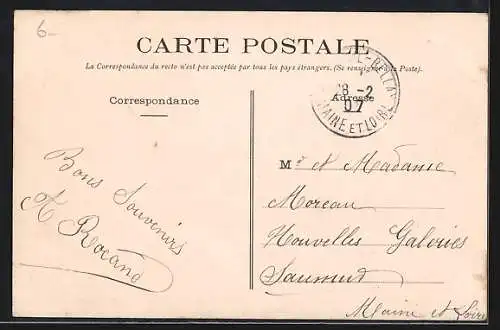 6-
CARTE POSTALE
La Correspondance du recto n'est pas acceptée par tous les pays étrangers. (Se renseigner à la Poste).
Correspondance
Adresse
28 -2
07
MAINE ET LOIRE
Bons Souvenirs
M r et Madame
Moreau
Nouvelles Galeries
Saumur
Maine et Loire